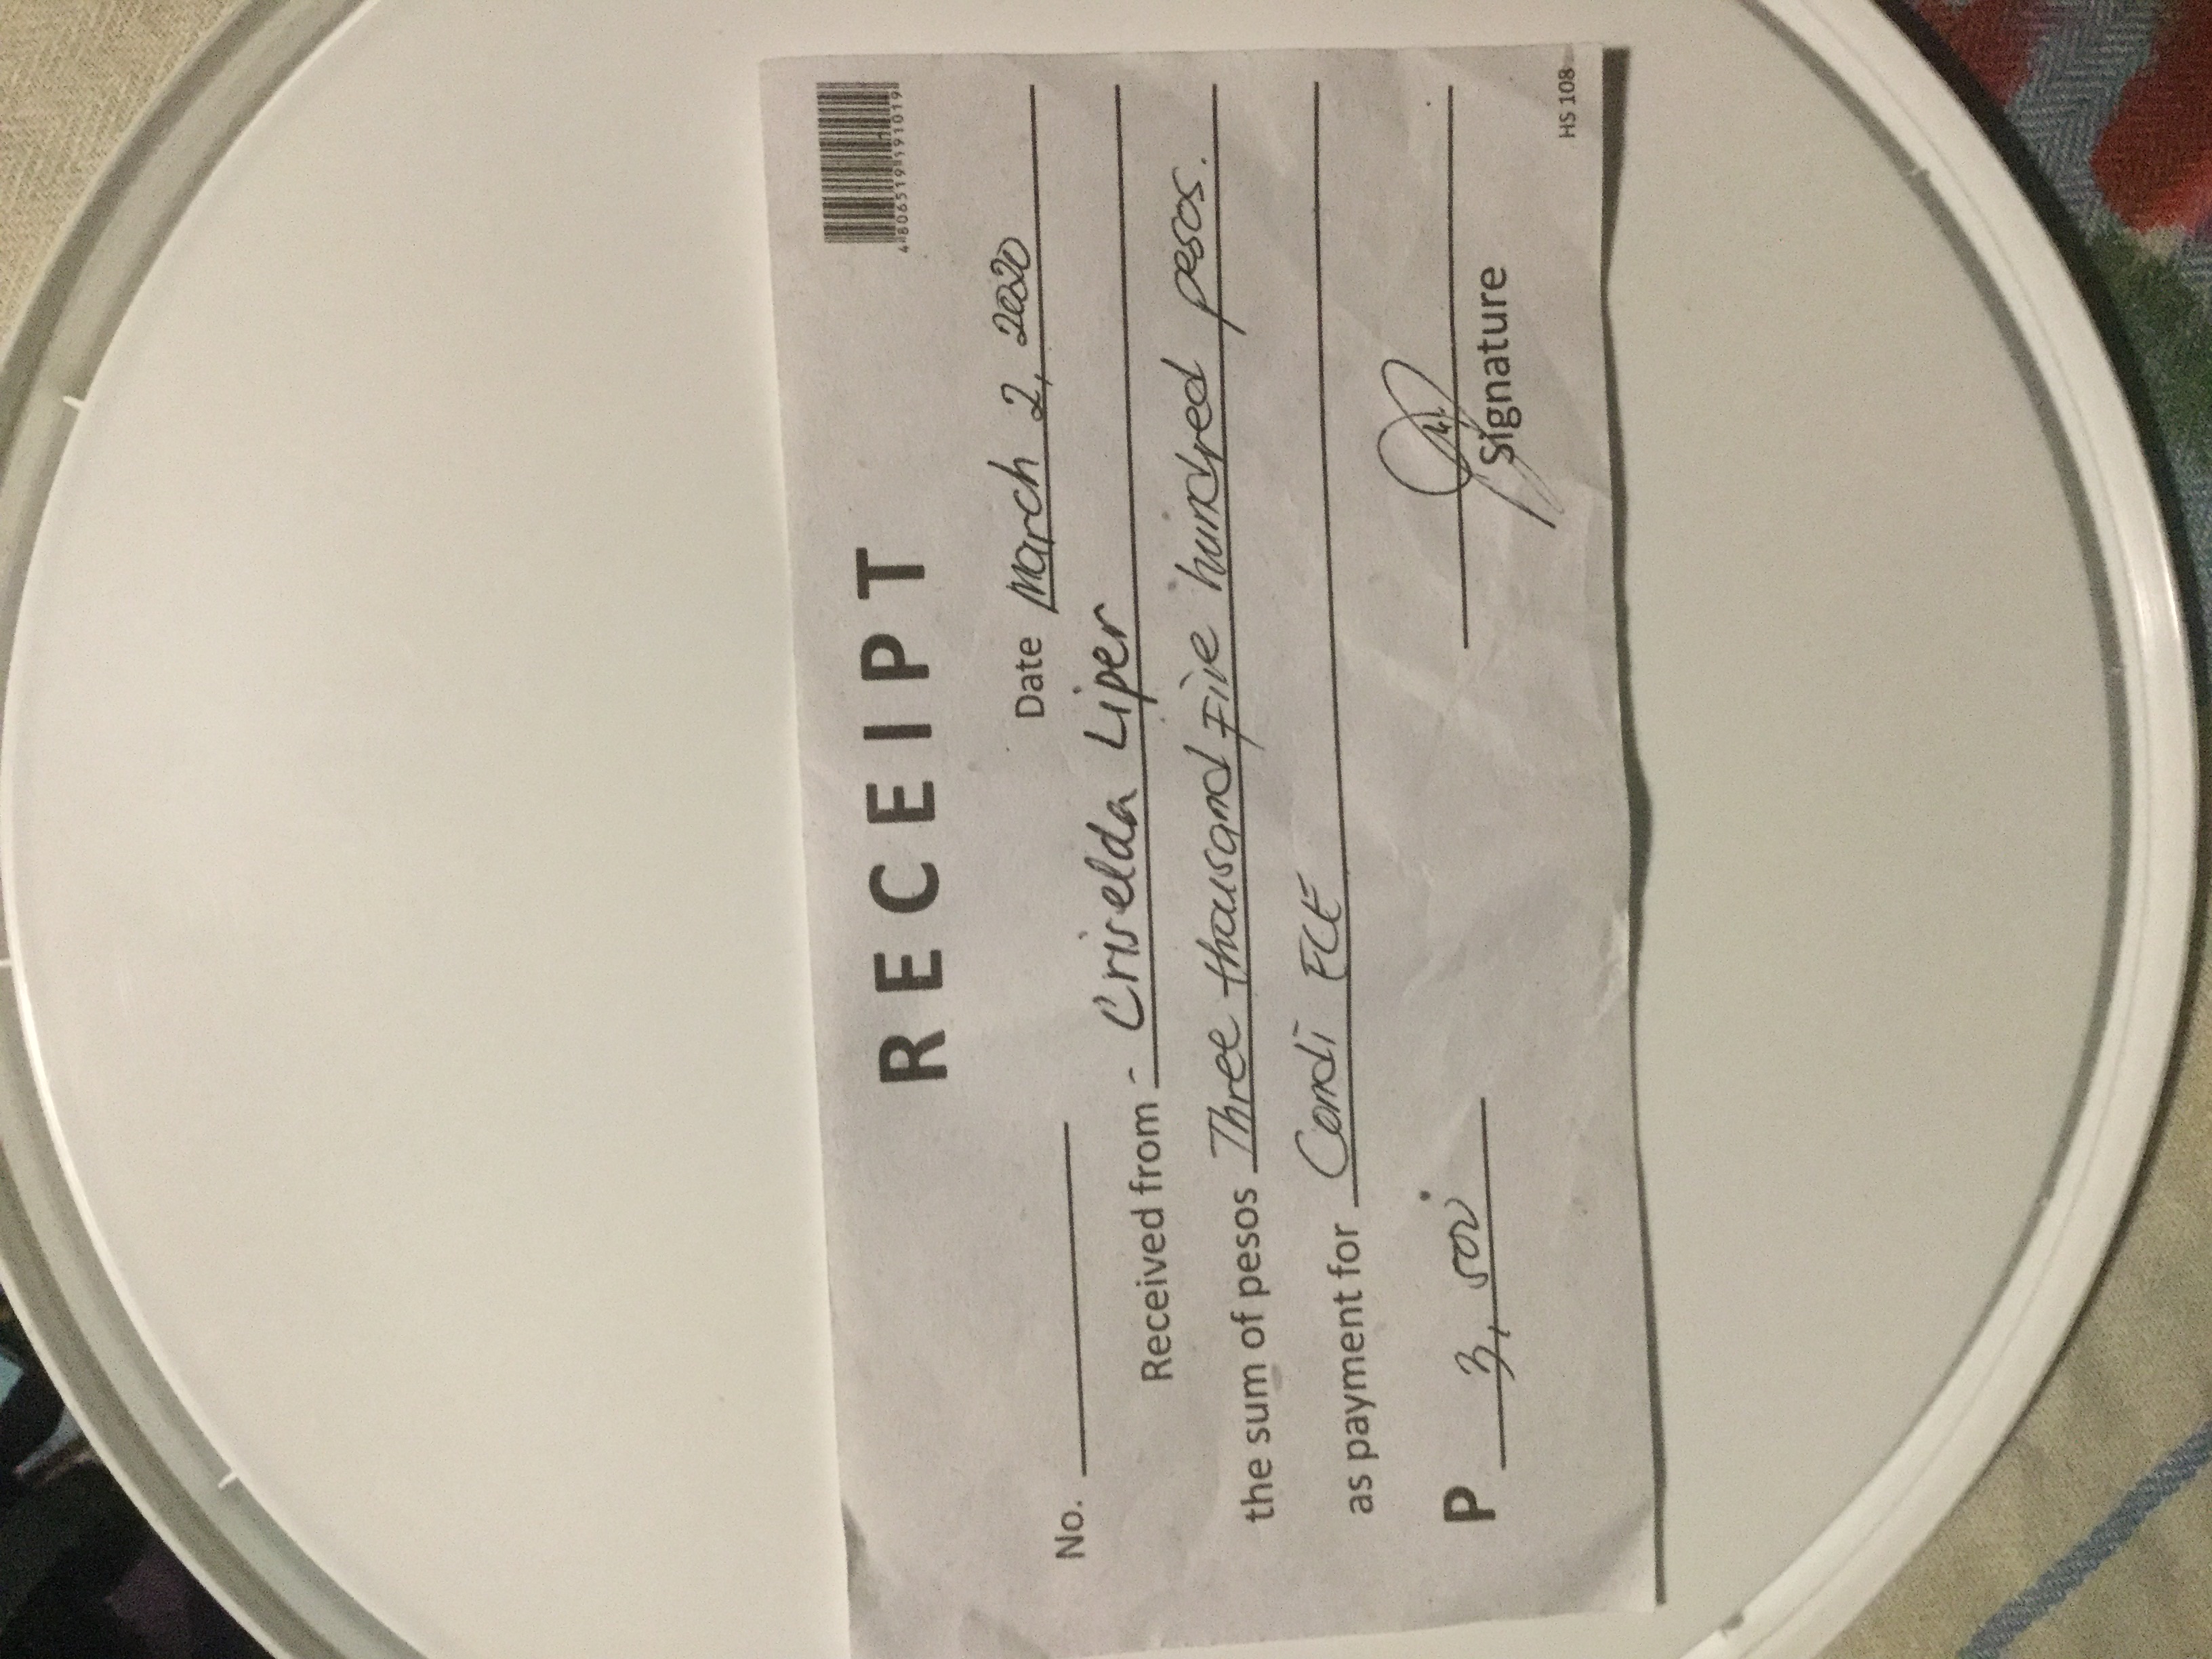 RECEIPT
4 806519 191019
Date March 2, 2020
No.
Received from - Criselda Liper
the sum of pesos Three thousand Five hundred pesos.
as payment for Condi ECE
P 3,500
Signature
HS 108